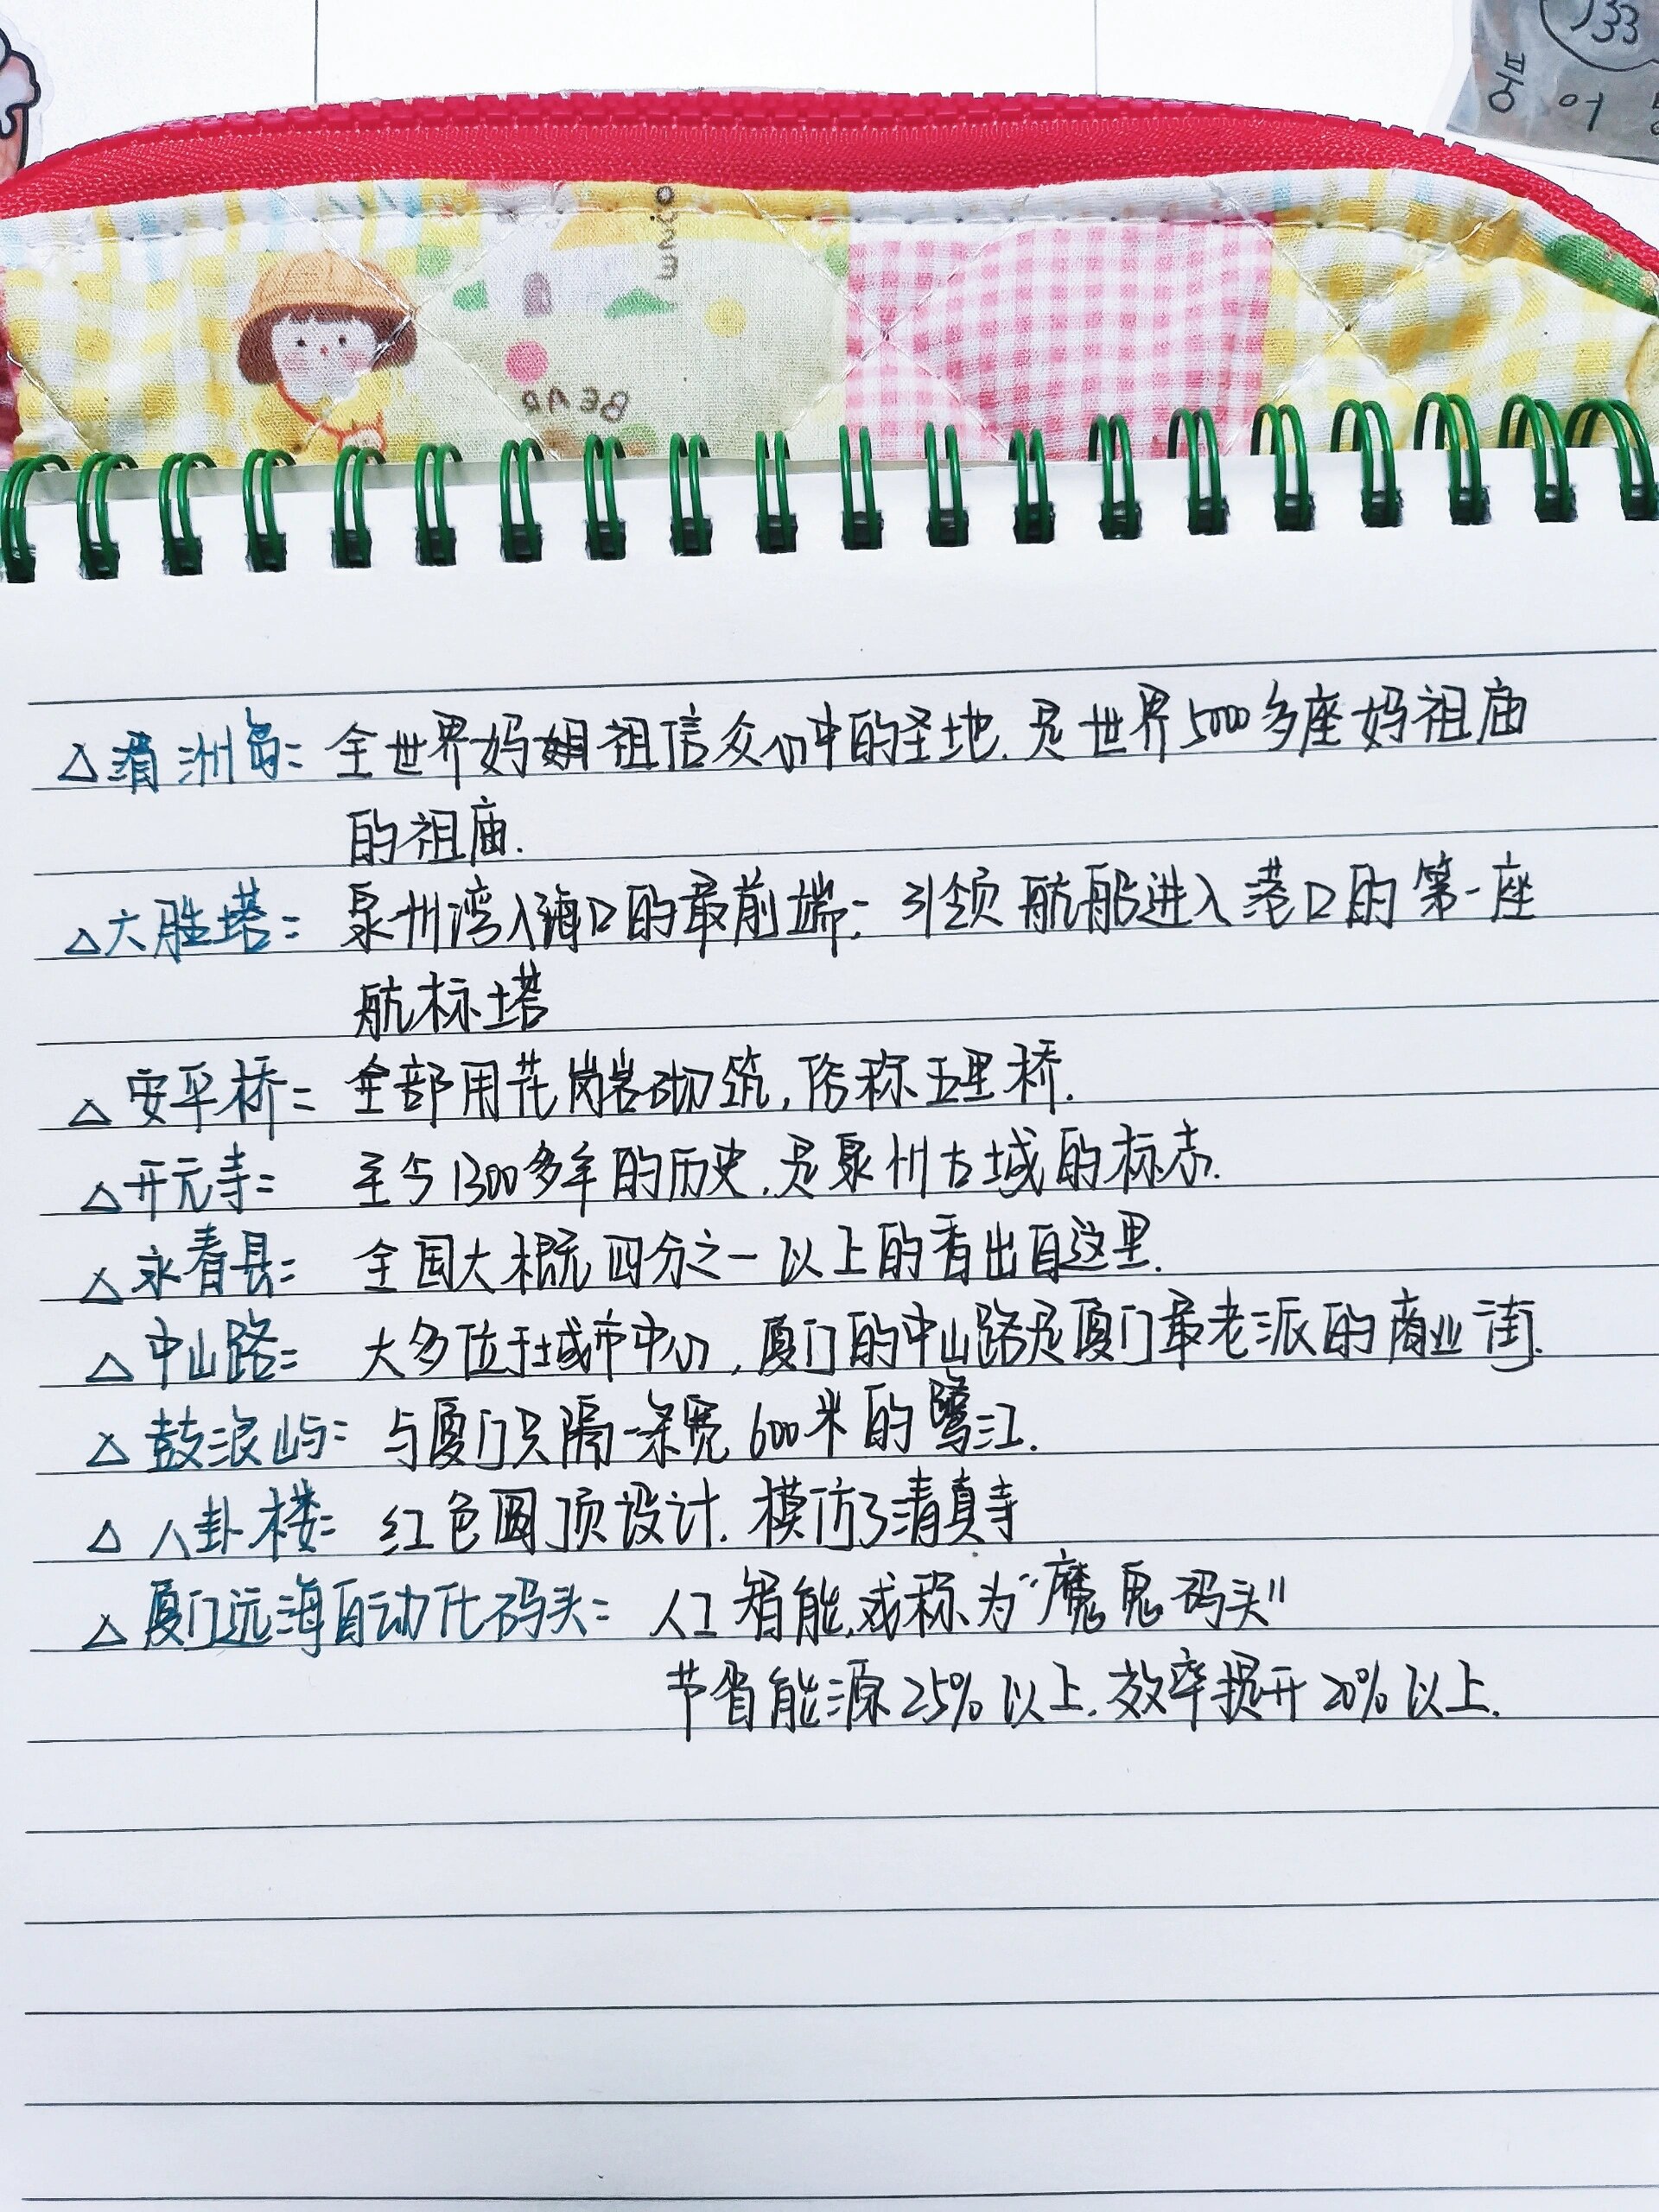 133
붕 어
BEAD
△湄洲岛: 全世界妈祖信众心中的圣地.是世界5000多座妈祖庙
的祖庙.
△六胜塔: 泉州湾入海口的最前端; 引领航船进入港口的第一座
航标塔
△安平桥: 全部用花岗岩砌筑,俗称五里桥.
△开元寺: 至今1300多年的历史,是泉州古城的标志.
△永春县: 全国大概四分之一以上的香出自这里.
△中山路: 大多位于城市中心,厦门的中山路是厦门最老派的商业街.
△鼓浪屿: 与厦门只隔一条宽600米的鹭江.
△八卦楼: 红色圆顶设计.模仿了清真寺
△厦门远海自动化码头: 人工智能,或称为“魔鬼码头”
节省能源25%以上.效率提升20%以上.